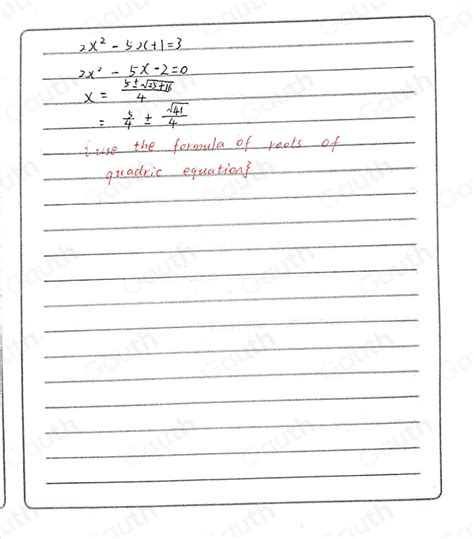 2x² - 5x+1=3
2x² - 5x-2=0
x = 5±√25+16 / 4
= 5/4 ± √41/4
{use the formula of roots of
quadric equation}